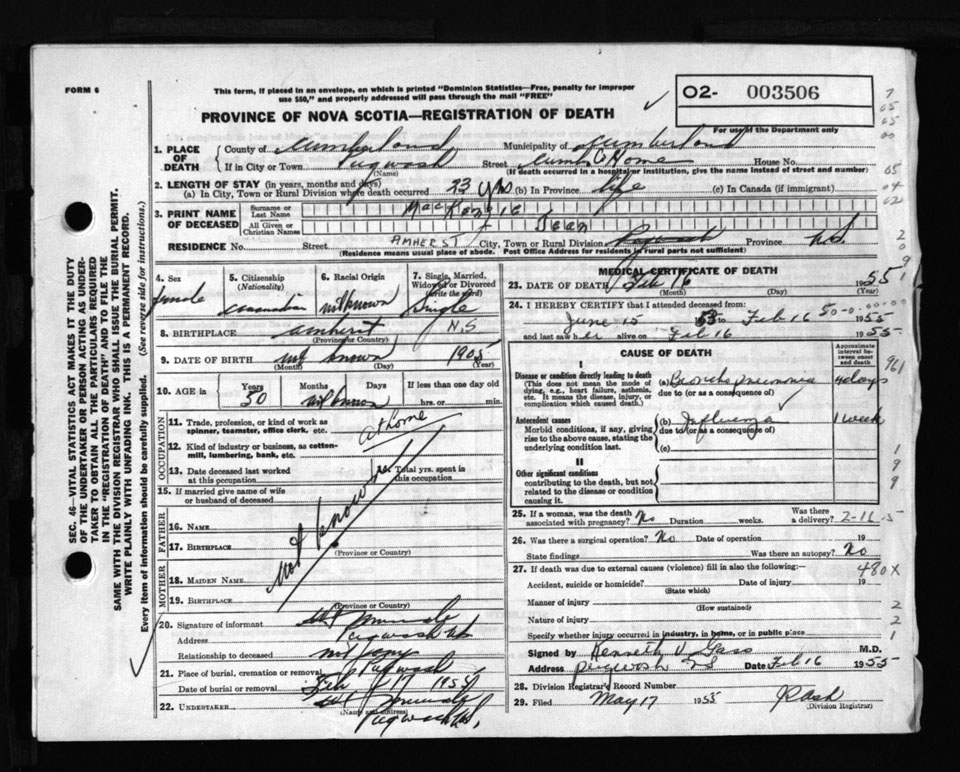 FORM 6
This form, if placed in an envelope, on which is printed "Dominion Statistics—Free, penalty for improper
use $50," and properly addressed will pass through the mail "FREE"
PROVINCE OF NOVA SCOTIA—REGISTRATION OF DEATH
O2- 003506
For use of the Department only
1. PLACE OF DEATH County of Cumberland Municipality of Cumberland
If in City or Town Pugwash (Name) Street Cumb Co Home House No.
(If death occurred in a hospital or institution, give the name instead of street and number)
2. LENGTH OF STAY (in years, months and days)
(a) In City, Town or Rural Division where death occurred 23 yrs (b) In Province life (c) In Canada (if immigrant)
3. PRINT NAME OF DECEASED Surname or Last Name MacKenzie
All Given or Christian Names Jean
RESIDENCE No. Street AMHERST City, Town or Rural Division Pugwash Province N.S.
(Residence means usual place of abode. Post Office Address for residents in rural parts not sufficient)
4. Sex female
5. Citizenship (Nationality) Canadian
6. Racial Origin unknown
7. Single, Married, Widowed or Divorced (write the word) Single
8. BIRTHPLACE Amherst N.S
(Province or Country)
9. DATE OF BIRTH not known 1905
(Month) (Day) (Year)
10. AGE in Years 50 Months Days unknown If less than one day old hrs. or min.
OCCUPATION
11. Trade, profession, or kind of work as spinner, teamster, office clerk, etc. at home
12. Kind of industry or business, as cotton-mill, lumbering, bank, etc.
13. Date deceased last worked at this occupation
14. Total yrs. spent in this occupation
15. If married give name of wife or husband of deceased
FATHER
16. NAME not known
17. BIRTHPLACE
(Province or Country)
MOTHER
18. MAIDEN NAME
19. BIRTHPLACE
(Province or Country)
20. Signature of informant
Address Pugwash NS
Relationship to deceased not any
21. Place of burial, cremation or removal Pugwash
Date of burial or removal Feb 17 1955
22. UNDERTAKER
(Name and address)
Pugwash NS.
MEDICAL CERTIFICATE OF DEATH
23. DATE OF DEATH Feb 16 1955
(Month) (Day)
24. I HEREBY CERTIFY that I attended deceased from:
June 15 53 to Feb 16 1955
and last saw her alive on Feb 16 1955
CAUSE OF DEATH
Approximate interval between onset and death
I
Disease or condition directly leading to death (a) Broncho pneumonia 4 days
(This does not mean the mode of dying, e.g., heart failure, asthenia, etc. It means the disease, injury, or complication which caused death.)
due to (or as a consequence of)
Antecedent causes (b) Influenza 1 week
Morbid conditions, if any, giving rise to the above cause, stating the underlying condition last.
due to (or as a consequence of)
(c)
II
Other significant conditions contributing to the death, but not related to the disease or condition causing it.
25. If a woman, was the death associated with pregnancy? No Duration weeks. Was there a delivery? 2-16-5
26. Was there a surgical operation? No Date of operation 19
State findings Was there an autopsy? No
27. If death was due to external causes (violence) fill in also the following:— 480x
Accident, suicide or homicide? Date of injury 19
(State which)
Manner of injury
(How sustained)
Nature of injury
Specify whether injury occurred in industry, in home, or in public place
Signed by Kenneth V. Gass M.D.
Address Pugwash NS Date Feb 16 1955
28. Division Registrar's Record Number
29. Filed May 17 1955 J R Ash
(Division Registrar)
SEC. 46—VITAL STATISTICS ACT MAKES IT THE DUTY
OF THE UNDERTAKER OR PERSON ACTING AS UNDERTAKER
TO OBTAIN ALL THE PARTICULARS REQUIRED
IN THE "REGISTRATION OF DEATH" AND TO FILE THE
SAME WITH THE DIVISION REGISTRAR WHO SHALL ISSUE THE BURIAL PERMIT.
WRITE PLAINLY WITH UNFADING INK. THIS IS A PERMANENT RECORD.
Every item of information should be carefully supplied. (See reverse side for instructions.)